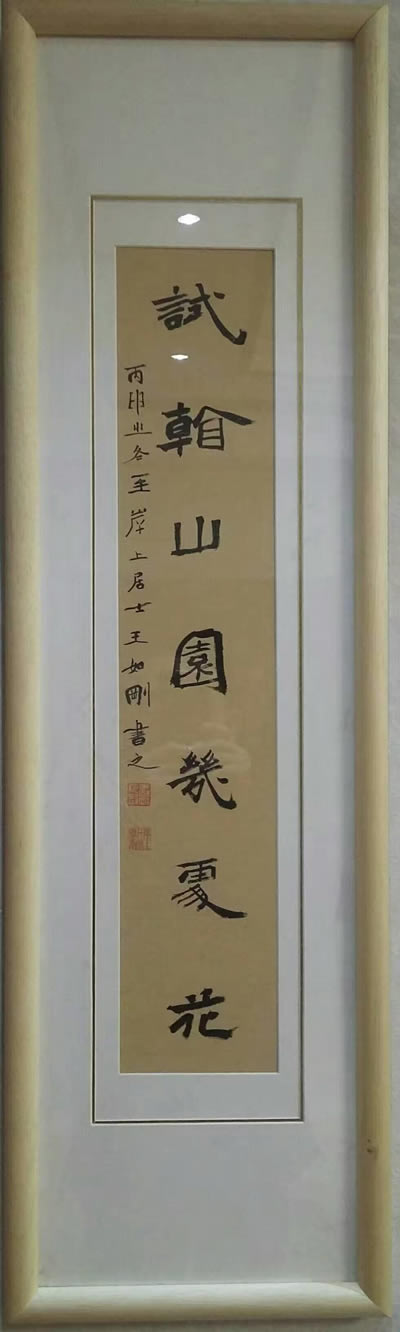 試看山園幾處花
丙申之冬至岸上居士王如剛書之